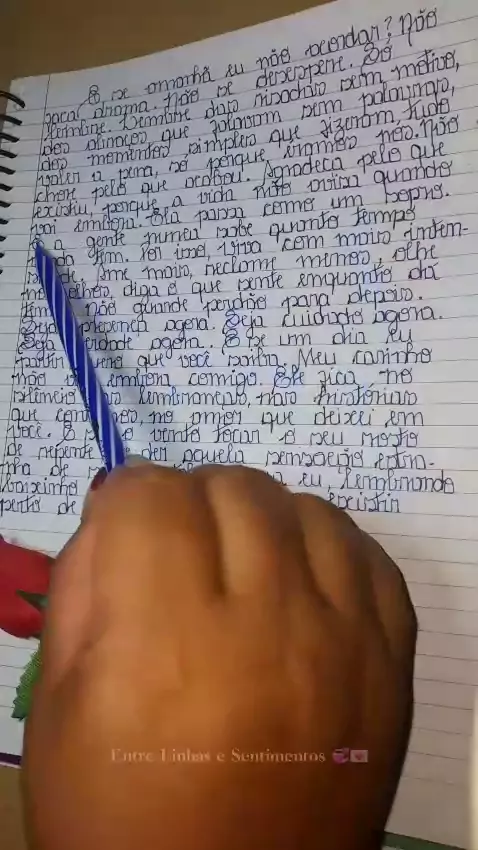 E se amanhã eu não acordar? Não
faça drama. Não se desespere. Só
lembre. Lembre das risadas sem motivo,
dos abraços que falavam sem palavras,
dos momentos simples que fizeram tudo
valer a pena, só porque éramos nós. Não
chore pelo que acabou. Agradeça pelo que
existiu, porque a vida não avisa quando
vai embora. Ela passa como um sopro.
E a gente nunca sabe quanto tempo
tem. Por isso, viva com mais inten-
Ame mais, reclame menos, olhe
olhos, diga o que sente enquanto dá
Não guarde perdão para depois.
Seja presença agora. Seja cuidado agora.
Seja verdade agora. E se um dia eu
partir que você saiba. Meu carinho
não embora comigo. Ele fica no
lembranças, nas histórias
que no amor que deixei em
você. E o vento tocar o seu rosto
de repente der aquela sensação estra-
nha de eu, lembrando
baixinho existir
perto de
Entre Linhas e Sentimentos 💞💌